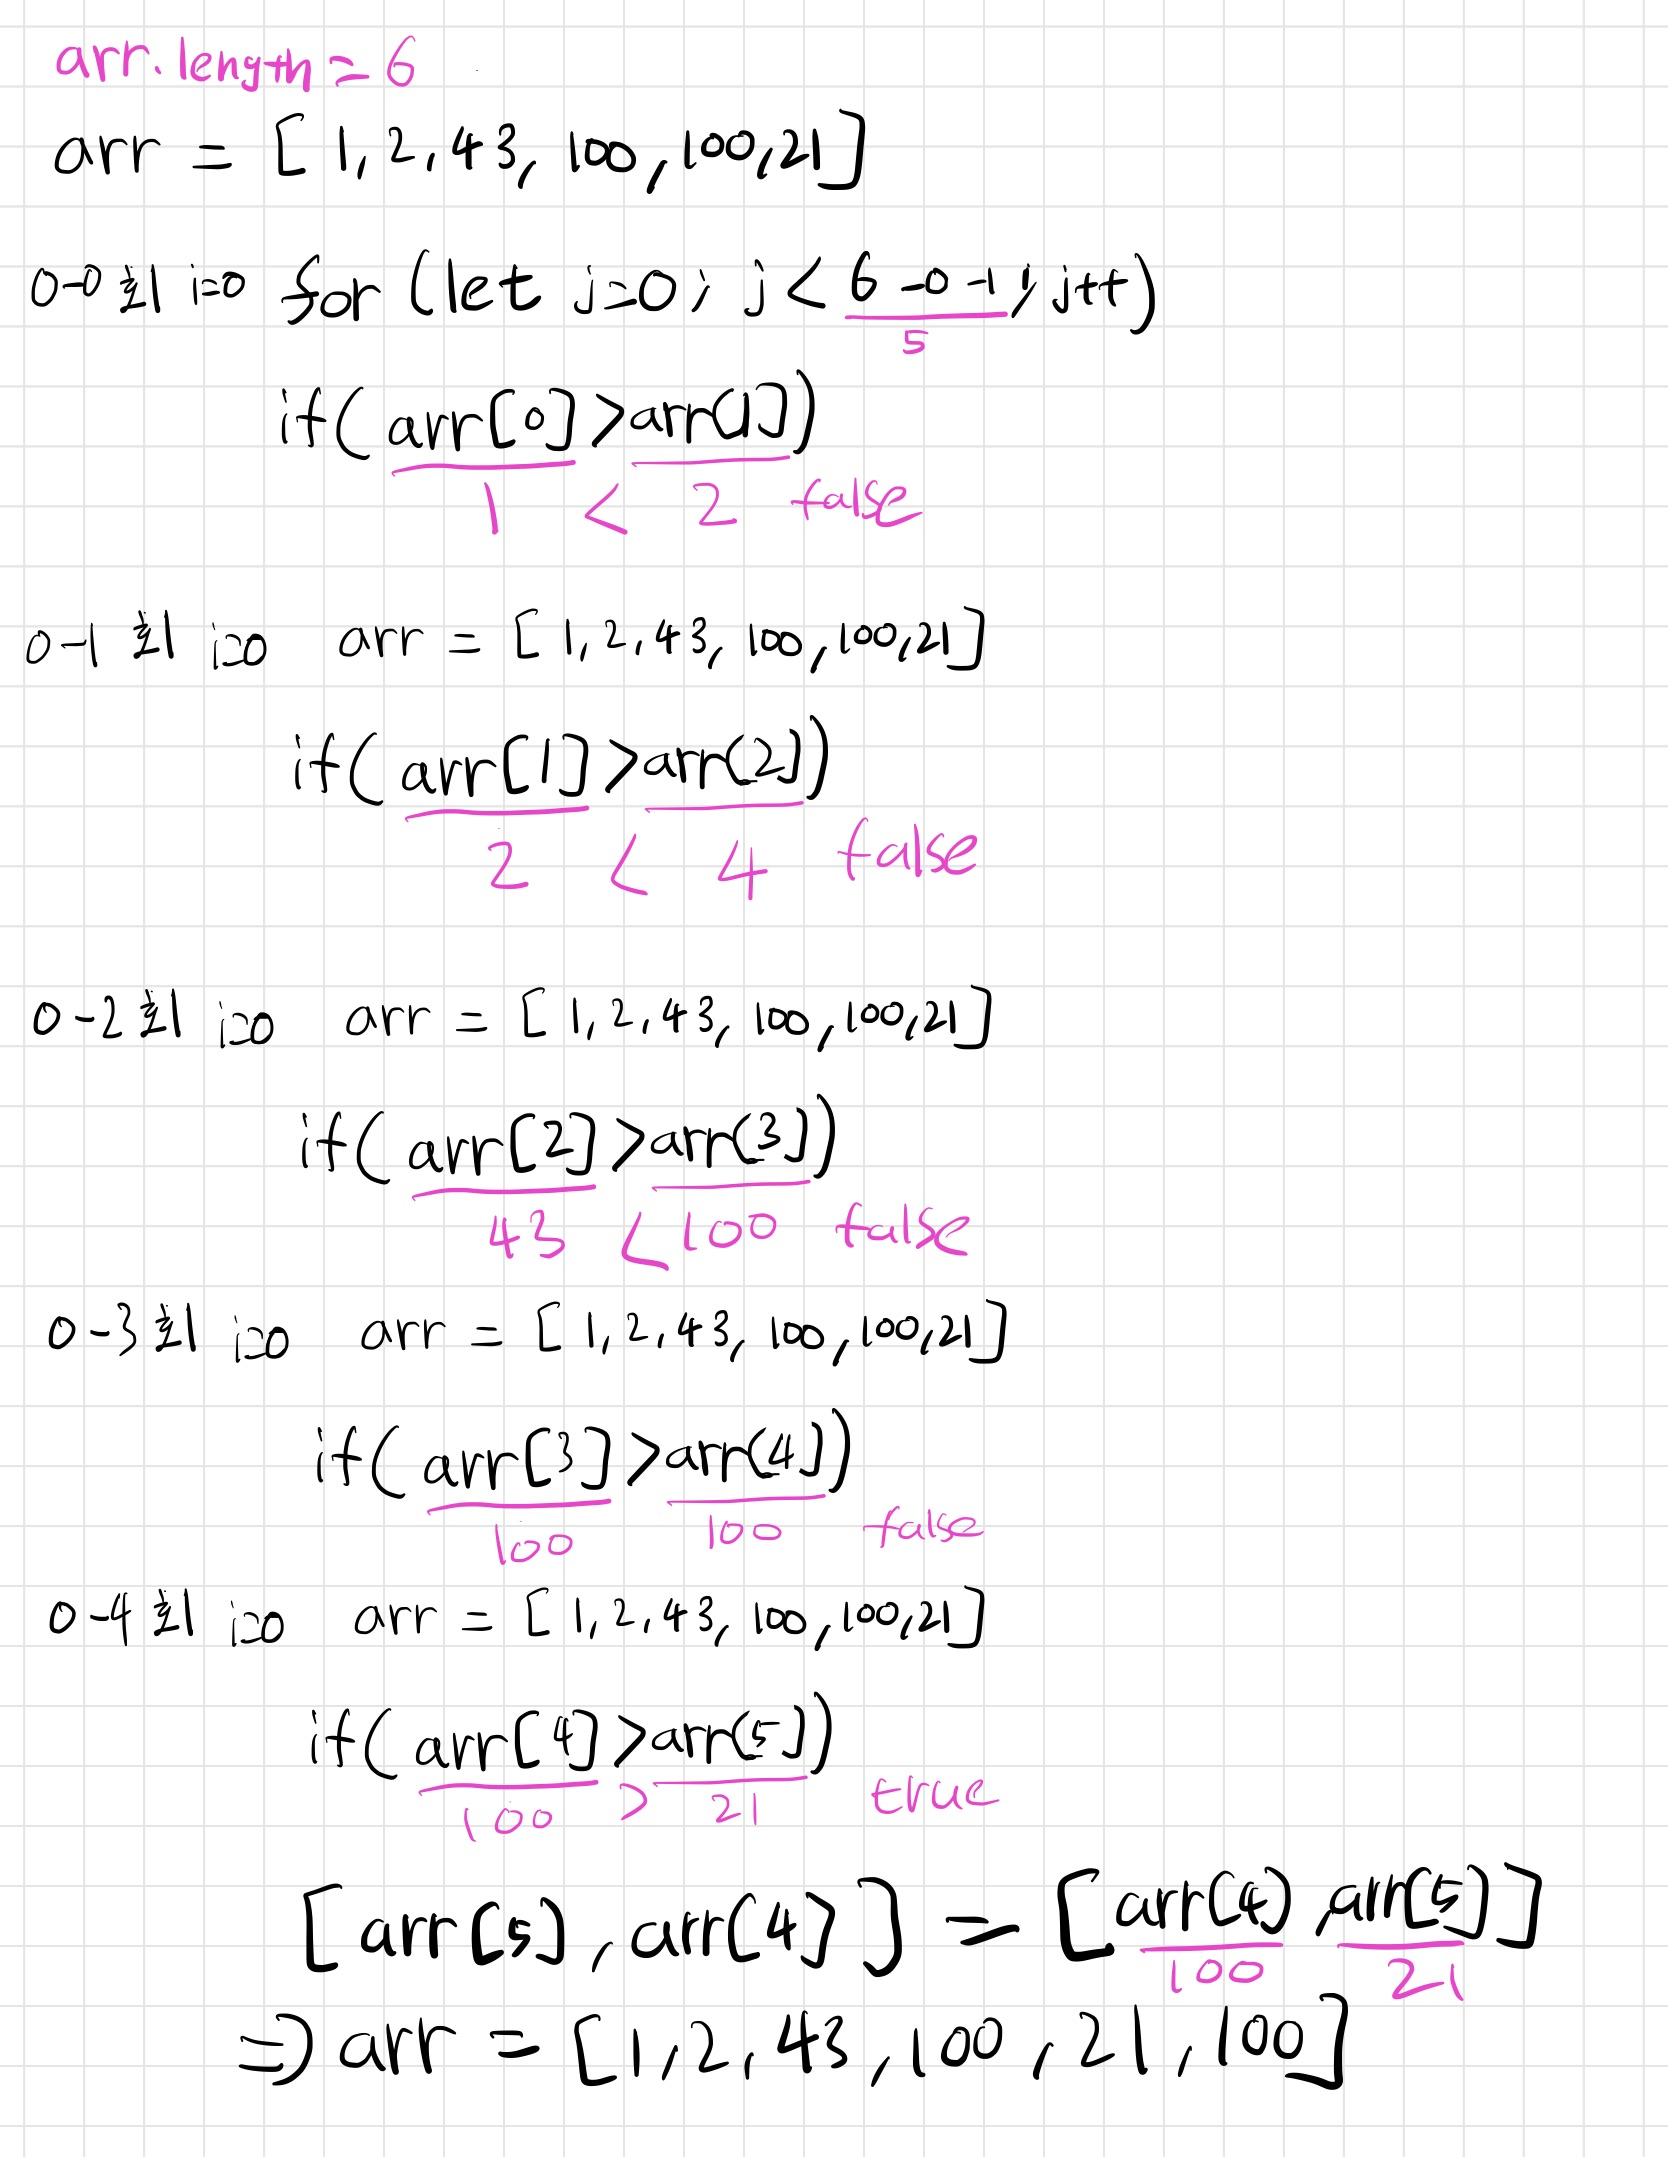 arr.length = 6
arr = [1,2,43,100,100,21]
0-0회 i=0 for (let j=0; j < 6-0-1; j++)
5
if( arr[0] > arr[1])
1 < 2 false
0-1 회 i=0 arr = [1,2,43,100,100,21]
if( arr[1] > arr[2])
2 < 4 false
0-2 회 i=0 arr = [1,2,43,100,100,21]
if( arr[2] > arr[3])
43 < 100 false
0-3 회 i=0 arr = [1,2,43,100,100,21]
if( arr[3] > arr[4])
100 100 false
0-4 회 i=0 arr = [1,2,43,100,100,21]
if( arr[4] > arr[5])
100 > 21 true
[arr[5], arr[4]] = [arr[4], arr[5]]
100 21
⇒ arr = [1,2,43,100,21,100]